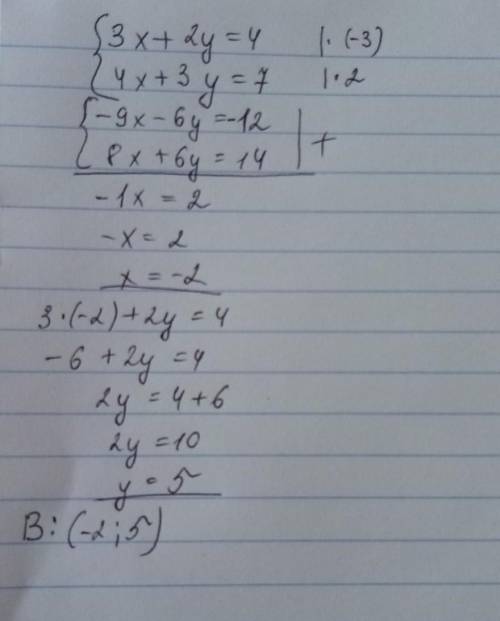 {3x+2y=4 |·(-3)
{4x+3y=7 |·2
{-9x-6y=-12 | +
{8x+6y=14 |
-1x=2
-x=2
x=-2
3·(-2)+2y=4
-6+2y=4
2y=4+6
2y=10
y=5
В:(-2;5)